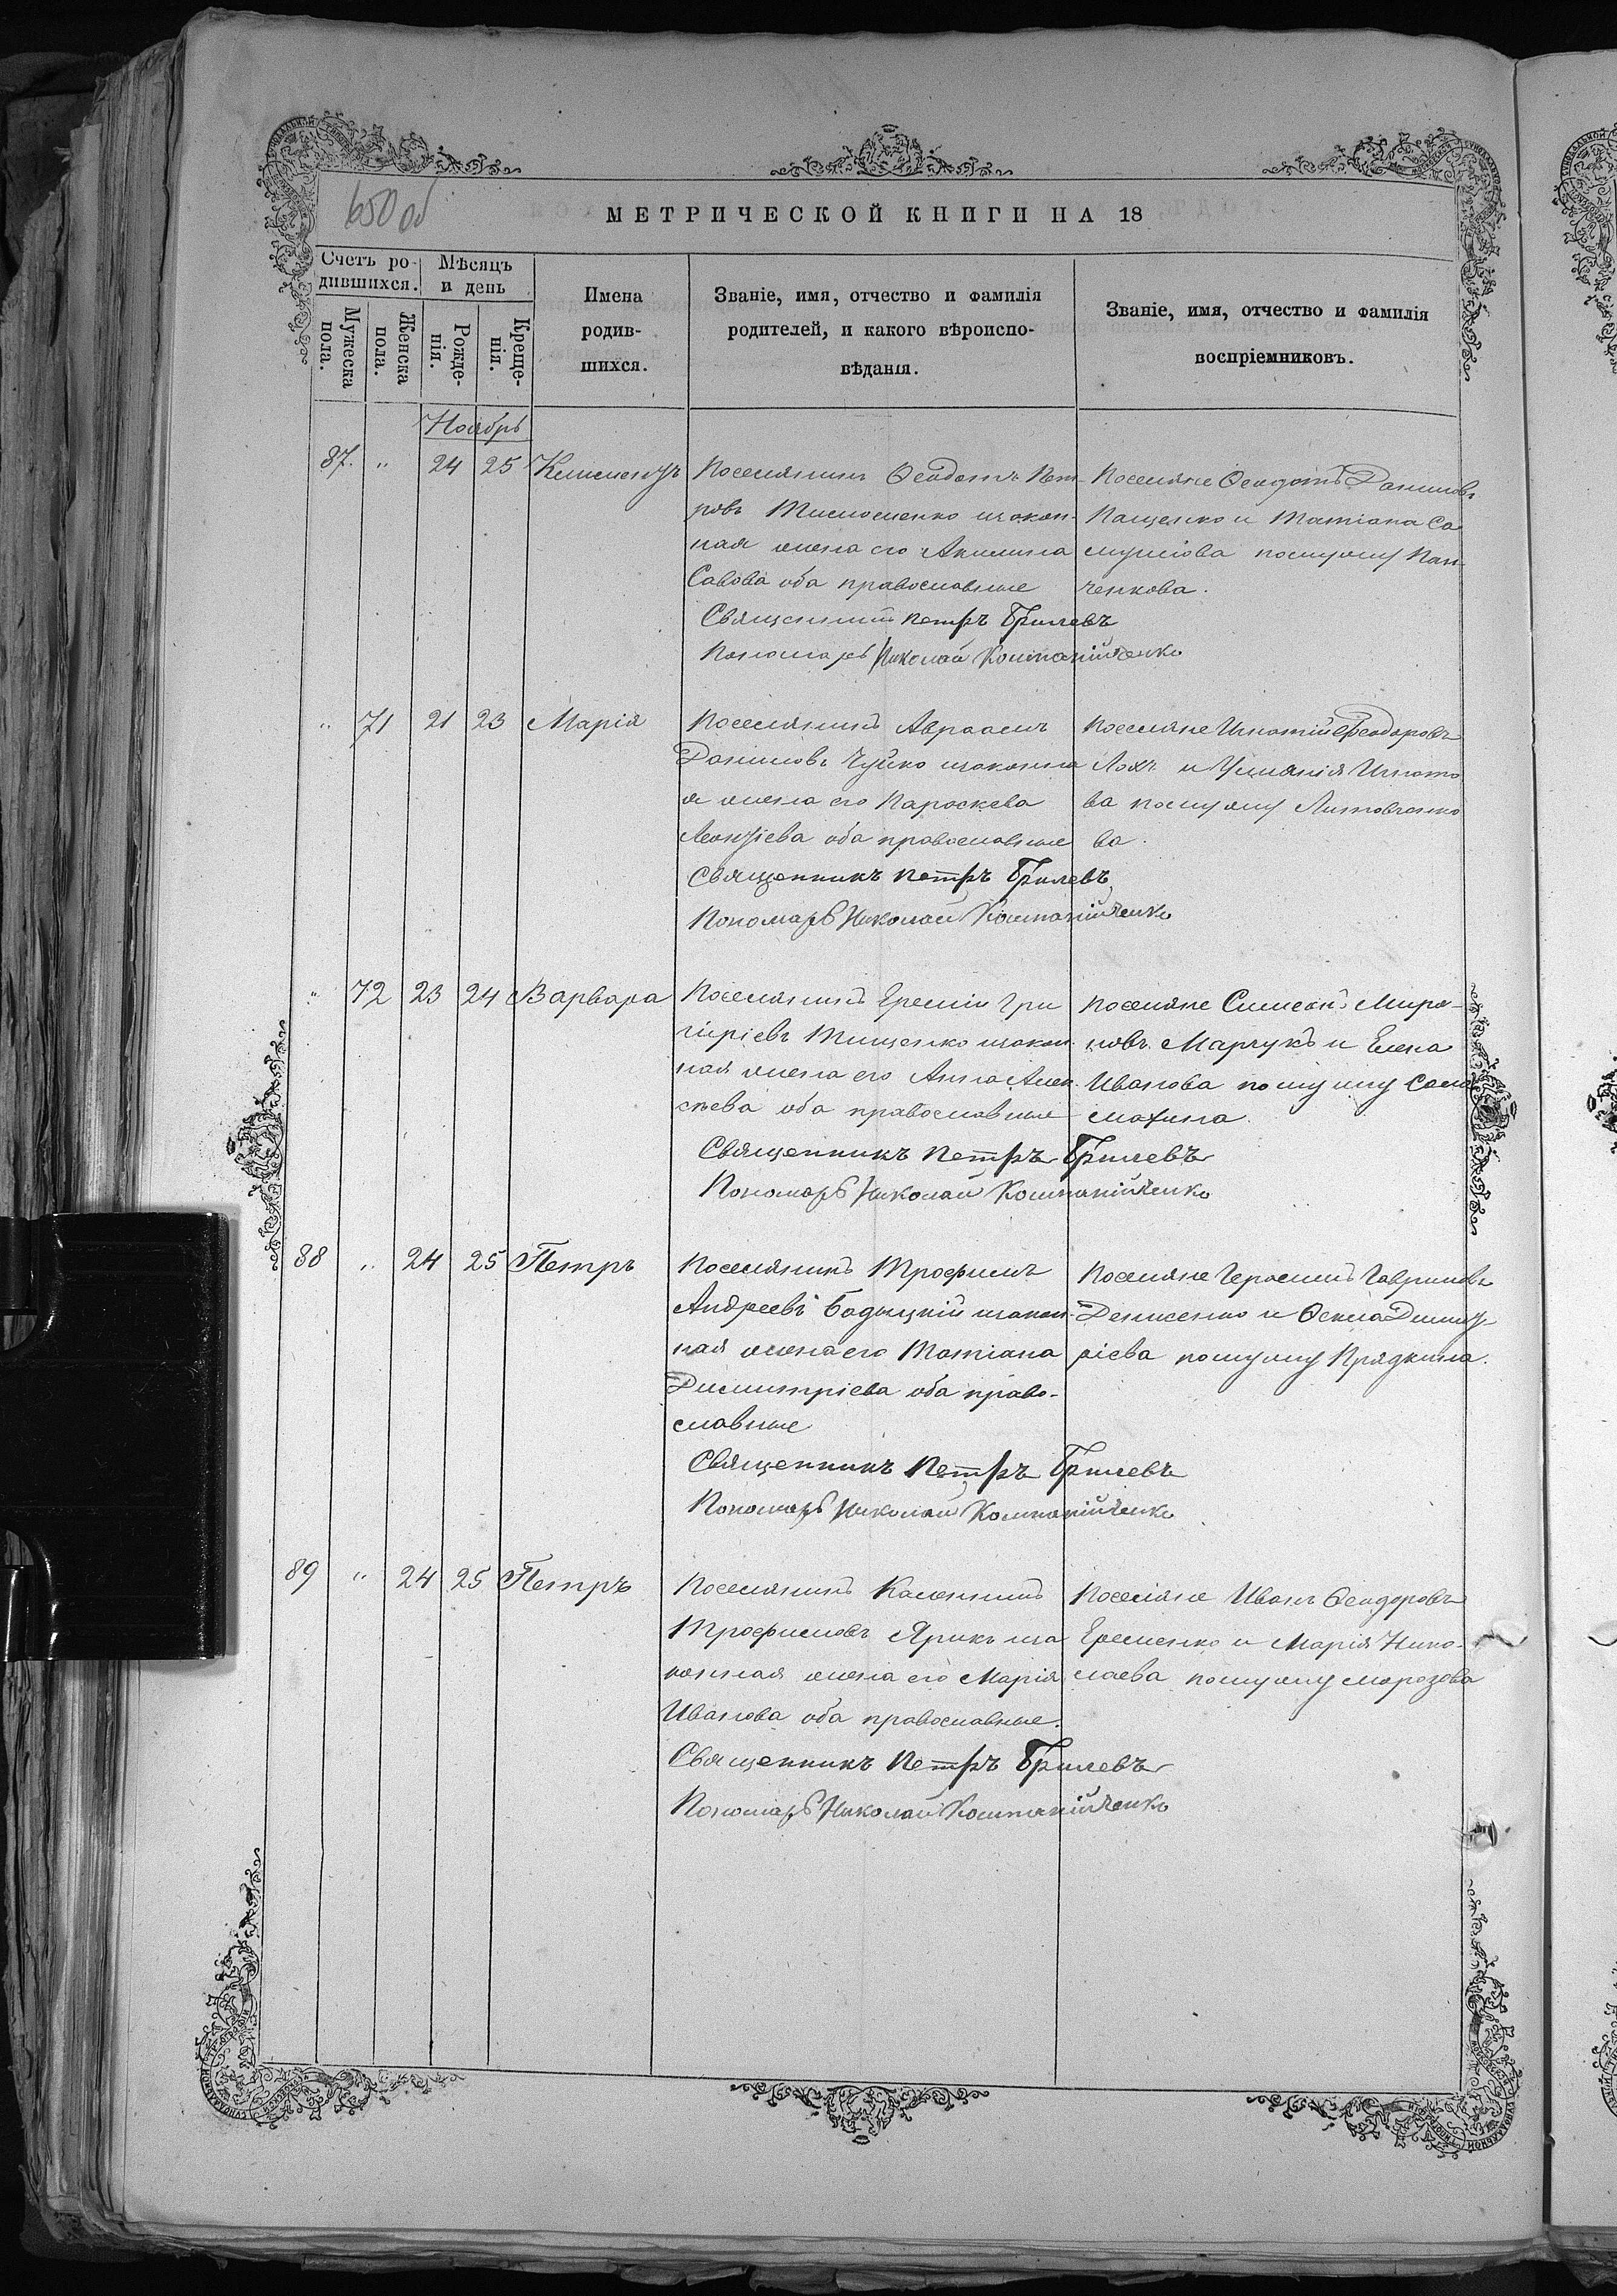 650 об
МЕТРИЧЕСКОЙ КНИГИ НА 18
Счетъ ро-
дившихся.
Мужеска
пола.
Женска
пола.
Мѣсяцъ
и день
Рожде-
нія.
Креще-
нія.
Имена
родив-
шихся.
Званіе, имя, отчество и фамилія
родителей, и какого вѣроиспо-
вѣданія.
Званіе, имя, отчество и фамилія
воспріемниковъ.
Ноябрь
87. " 24 25 Климентъ
Поселянинъ Ѳеодотъ Пет-
ровъ законн-
ная жена его Акилина
Савова оба православные
Священникъ Петръ Брилевъ
Пономарь Николай Компанійченко
Поселяне Ѳеодотъ Даниловъ
Пащенко и Татіана Са
муилова по мужу Пан-
ченкова.
" 71 21 23 Марія
Поселянинъ Авраамъ
Даниловъ Чуйко законна
я жена его Параскева
Леонтіева оба православные
Священникъ Петръ Брилевъ
Пономарь Николай Компанійченко
Поселяне Игнатій Ѳеодоровъ
Лохъ и Уліянія Игнато
ва по мужу Литовченко
ва.
" 72 23 24 Варвара
Поселянинъ Еремій Гри
горіевъ Тищенко закон-
ная жена его Анна Алек
сѣева оба православные
Священникъ Петръ Брилевъ
Пономарь Николай Компанійченко
Поселяне Симеонъ Миро-
новъ Марчукъ и Елена
Иванова по мужу
88 " 24 25 Петръ
Поселянинъ Трофимъ
Андреевъ закон-
ная жена его Татіана
Димитріева оба право-
славные
Священникъ Петръ Брилевъ
Пономарь Николай Компанійченко
Поселяне Герасимъ Гавриловъ
Денисенко и Ѳекла Димит-
ріева по мужу Прядкина.
89 " 24 25 Петръ
Поселянинъ Калинникъ
Трофимовъ Ярикъ за
конная жена его Марія
Иванова оба православные.
Священникъ Петръ Брилевъ
Пономарь Николай Компанійченко
Поселяне Иванъ Ѳеодоровъ
Еременко и Марія Нико-
лаева по мужу Морозова